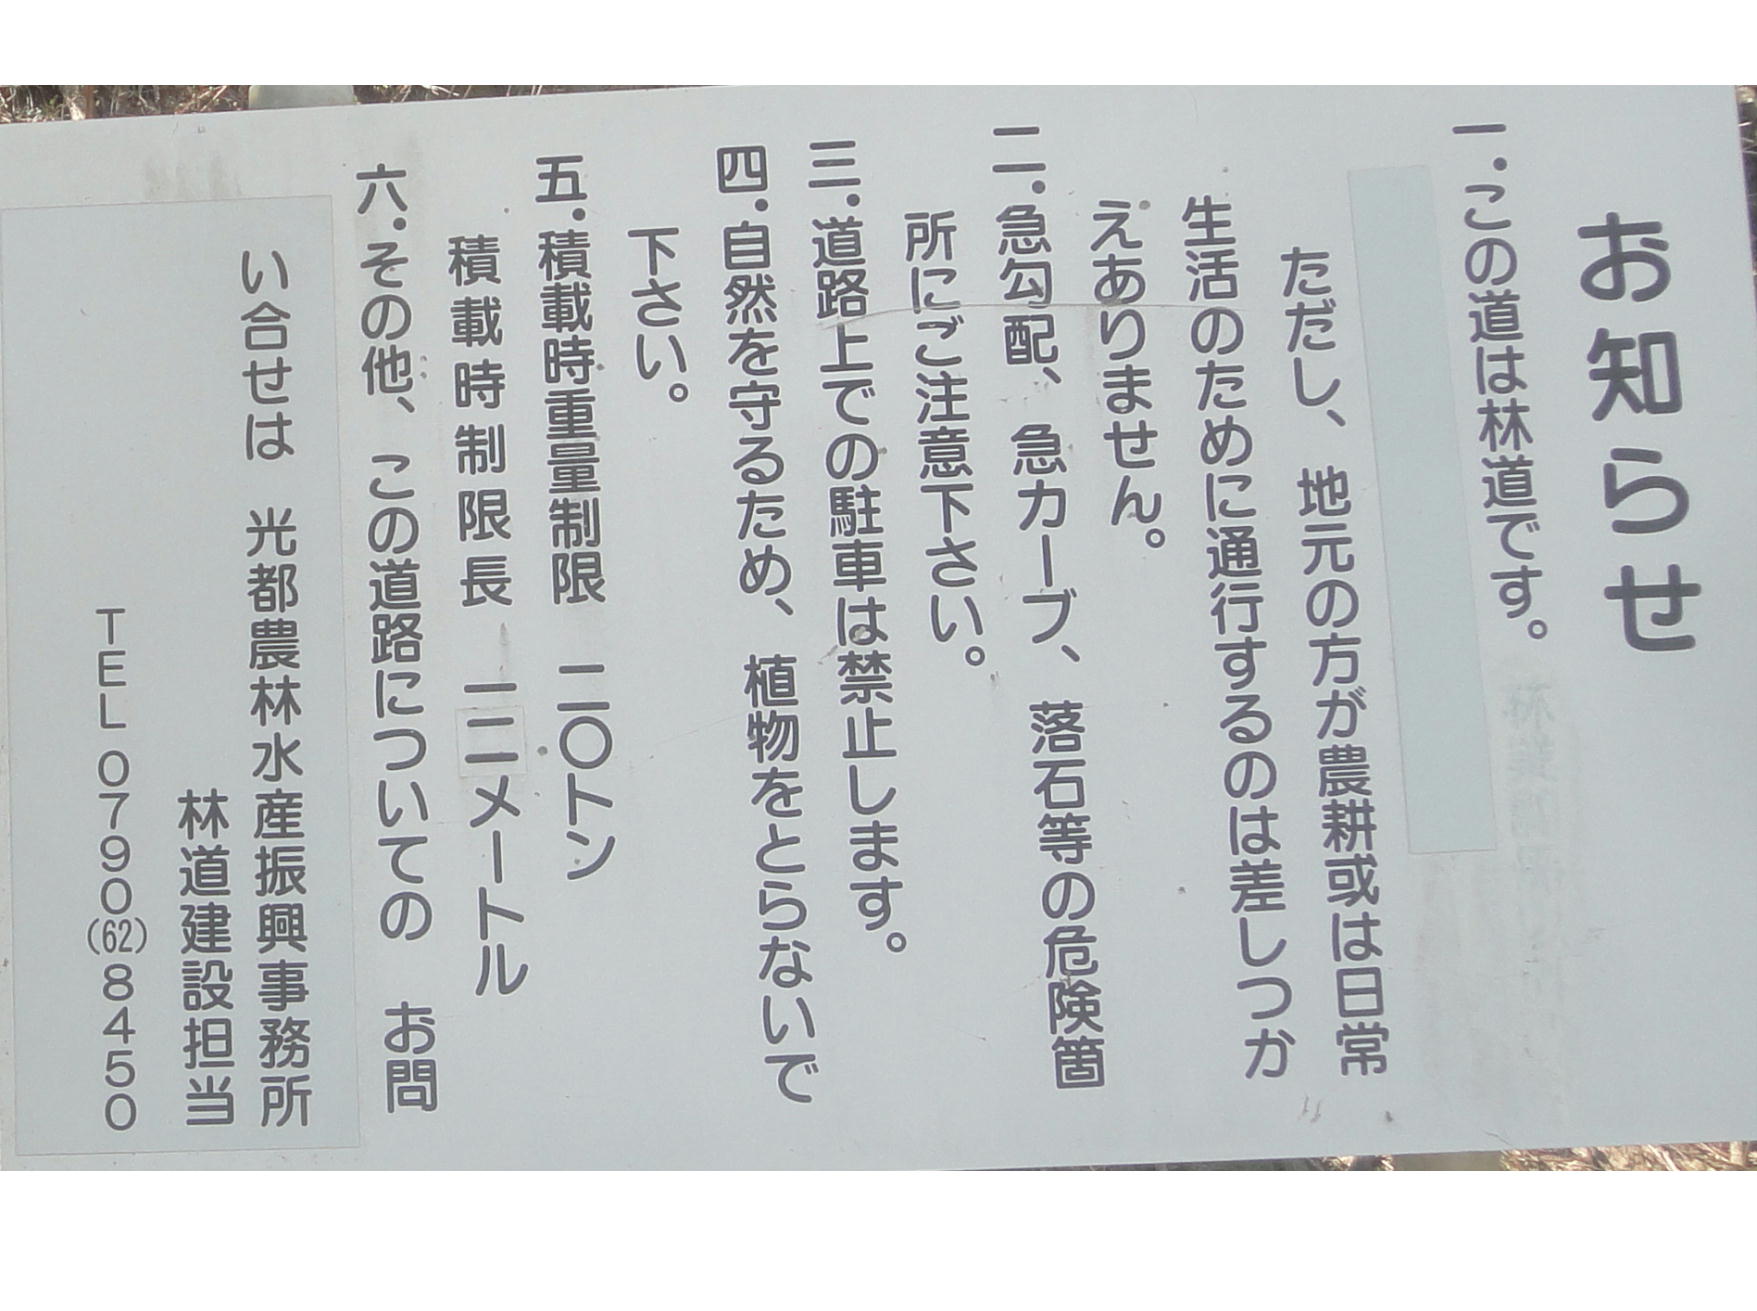 お知らせ
一.この道は林道です。
ただし、地元の方が農耕或は日常
生活のために通行するのは差しつか
えありません。
二.急勾配、急カーブ、落石等の危険箇
所にご注意下さい。
三.道路上での駐車は禁止します。
四.自然を守るため、植物をとらないで
下さい。
五.積載時重量制限 二〇トン
積載時制限長 一二メートル
六.その他、この道路についての お問
い合せは 光都農林水産振興事務所
林道建設担当
TEL 0790(62)8450